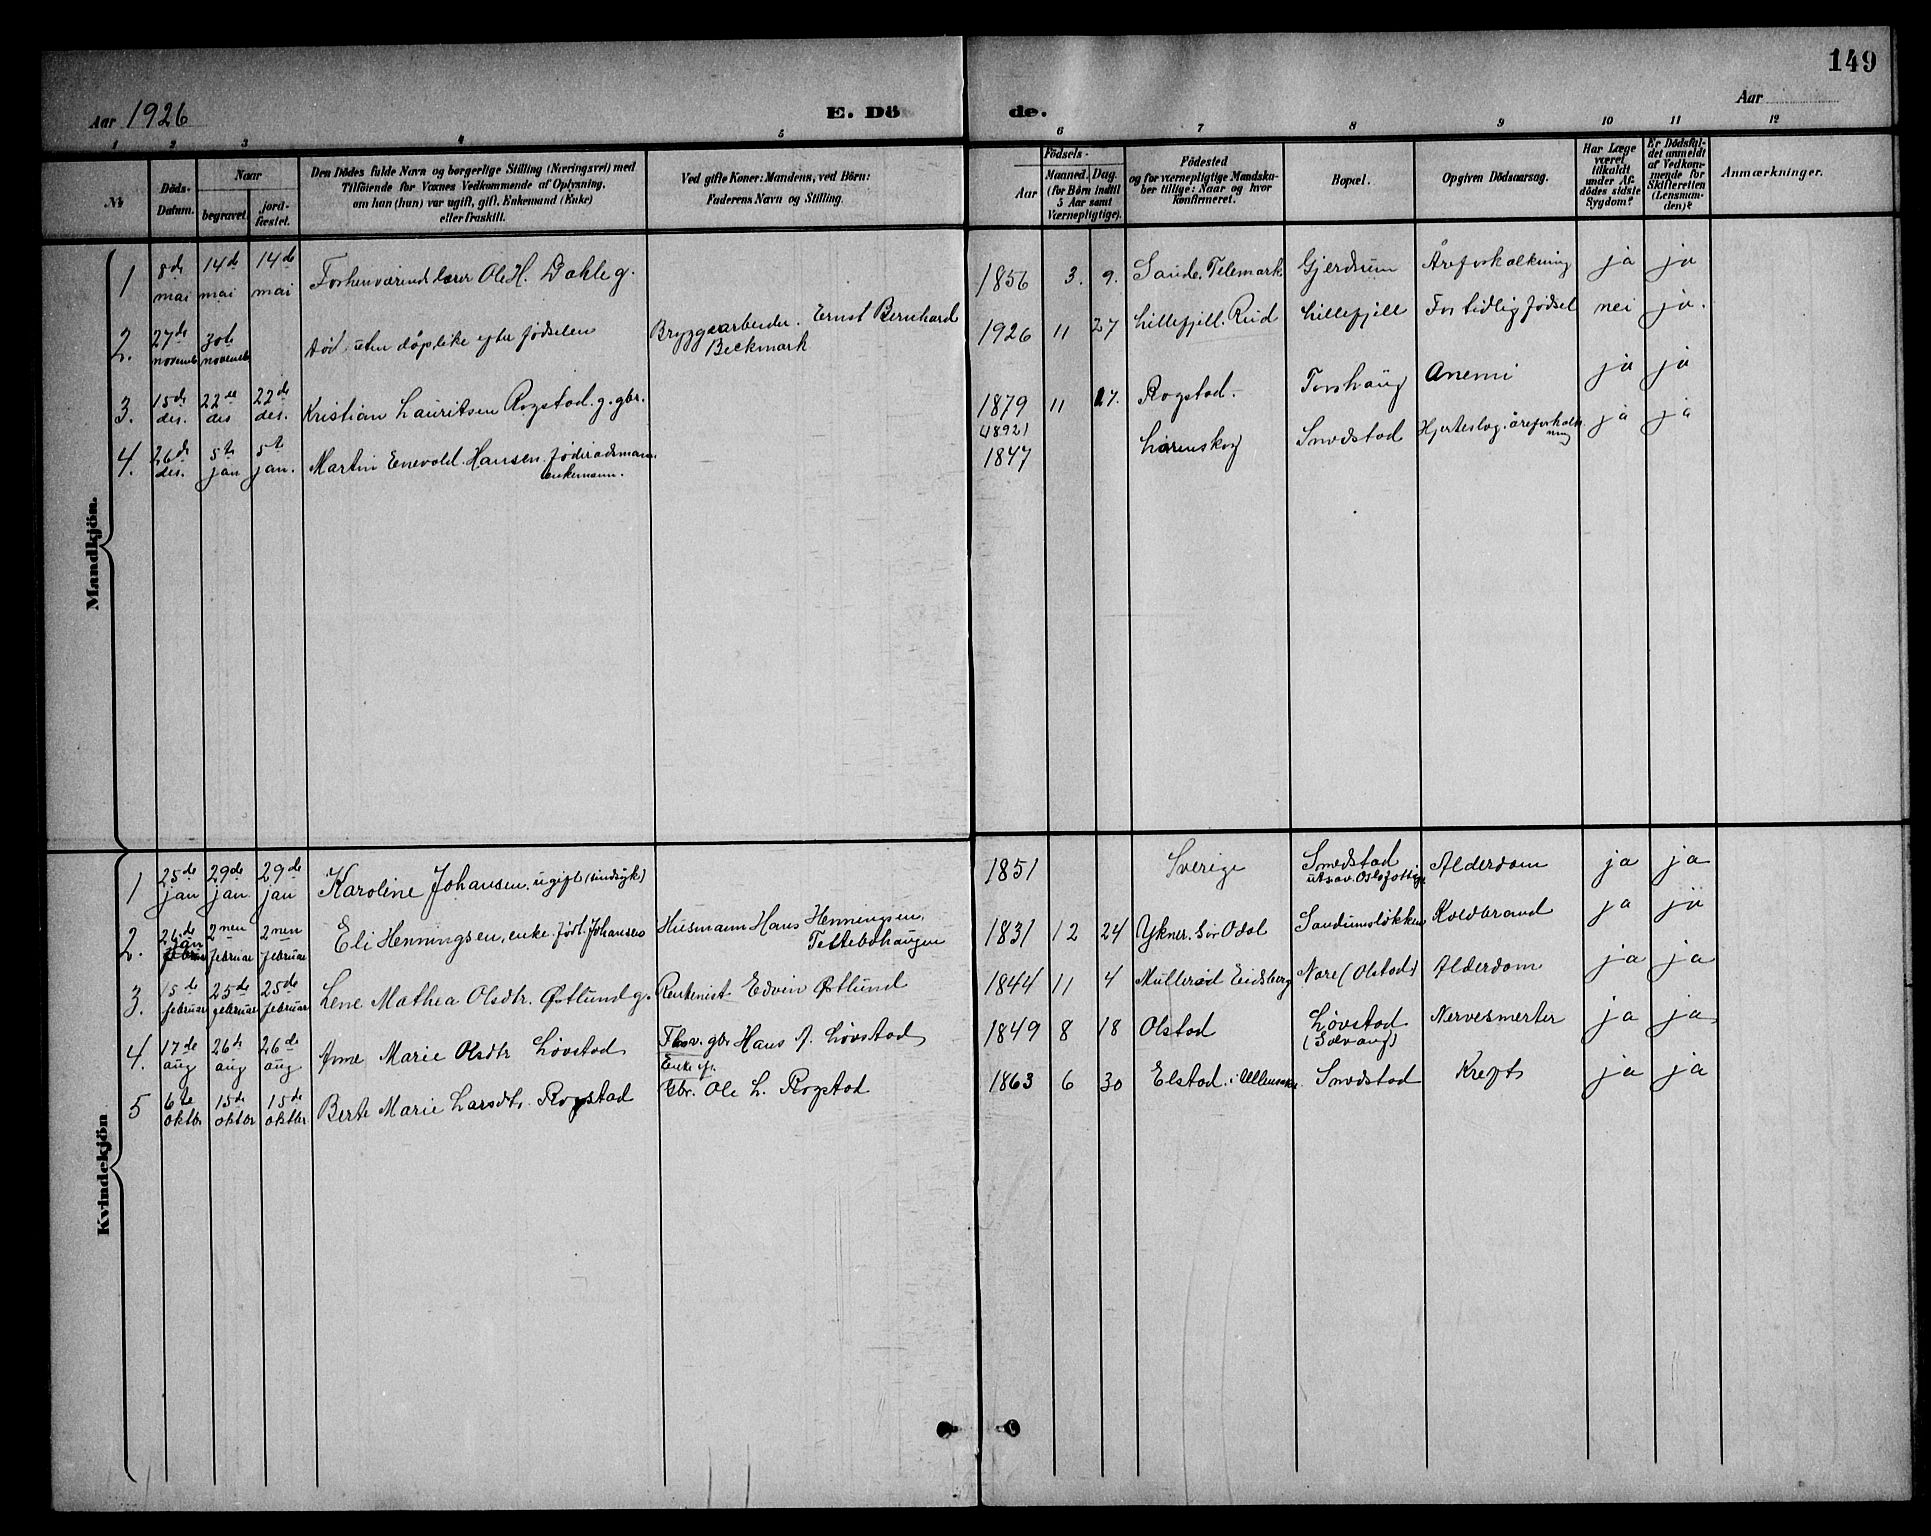 149
Aar 1926
E. Dö
de.
Aar
1 2 3 4 5 6 7 8 9 10 11 12
№
Döds-
Datum.
Naar
begravet.
jord-
fæstet.
Den Dödes fulde Navn og borgerlige Stilling (Næringsvei) med
Tilföiende for Voxnes Vedkommende af Oplysning,
om han (hun) var ugift, gift, Enkemand (Enke)
eller fraskilt.
Ved gifte Koner: Mandens, ved Börn:
Faderens Navn og Stilling.
Födsels-
Aar
Maaned. Dag.
(for Börn indtil
5 Aar samt
Værnepligtige).
Födested
og for værnepligtige Mandska-
ber tillige: Naar og hvor
konfirmeret.
Bopæl.
Opgiven Dödsaarsag.
Har Læge
været
tilkaldt
under Af-
dödes sidste
Sygdom?
Er Dödsfal-
det anmeldt
af Vedkom-
mende for
Skifteretten
(Lensman-
den)?
Anmærkninger.
Mandkjön.
1 8de mai 14de mai 14de mai Forhenværende lærer Ole H. Dahle g. 1856 3. 9. Saude, Telemark Gjerdrum Åreforkalkning ja ja
2. 27de novemb 30te novemb död uten dåp like efter födselen Bryggearbeider Ernst Bernhard
Beckmark 1926 11 27 Lillefjell. Rud Lillefjell For tidlig födsel nei ja.
3. 15de des. 22de des 22de des. Kristian Lauritsen Rogstad. g. gbr. 1879 11 17. Rogstad. Torshaug Anemi ja ja
4. 26de des. 5te jan 5te jan. Martin Enevold Hansen. föderådsmann
enkemann. 1847 Lørenskog Smedstad Hjerteslag. åreforkalk
ning ja ja
Kvindekjön
1 25de jan 29de jan 29de jan Karoline Johansen, ugift (sindsyk) 1851 Sverige Smedstad
Alderdom ja ja
2. 26de jan 2nen februar 2nen februar Eli Henningsen, enke född Johansen Husmann Hans Henningsen,
Tettebøhaugen 1831 12 24 Ykner. Sør Odal Sandumsløkken Koldbrand ja ja
3. 15de februar 25de februar 25de februar Lene Mathea Olsdtr. Østlund g. Rentenist Edvin Østlund 1844 11 4 Mullerød Eidsberg Nore (Olstad) Alderdom ja ja
4. 17de aug 26de aug 26de aug Anne Marie Olsdtr Løvstad Fhv. gbr Hans A. Løvstad 1849 8 18 Olstad Løvstad
(Solvang) Nervesmerter ja ja
5 6te oktbr 15de oktbr 15de oktbr Berte Marie Larsdtr. Rogstad Enke ef.
Gbr. Ole L. Rogstad 1863 6 30 Elstad i Ullensaker Smedstad Kreft ja ja